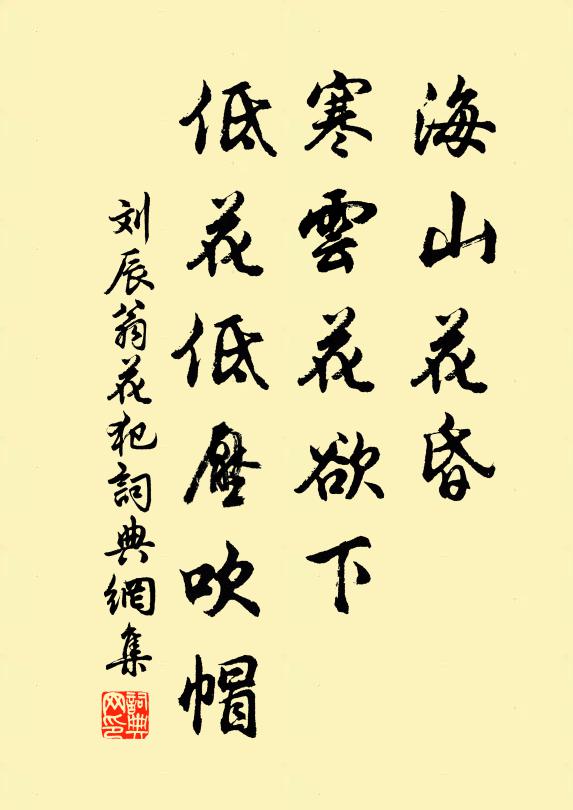 海山花昏
寒雲花欲下
低花低壓吹帽
刘辰翁花犯詞典網集
詞典网印